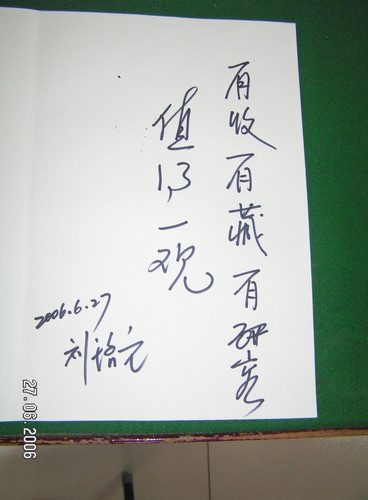 有收有藏有研究
值得一观
2006.6.27
刘 元
27.06.2006